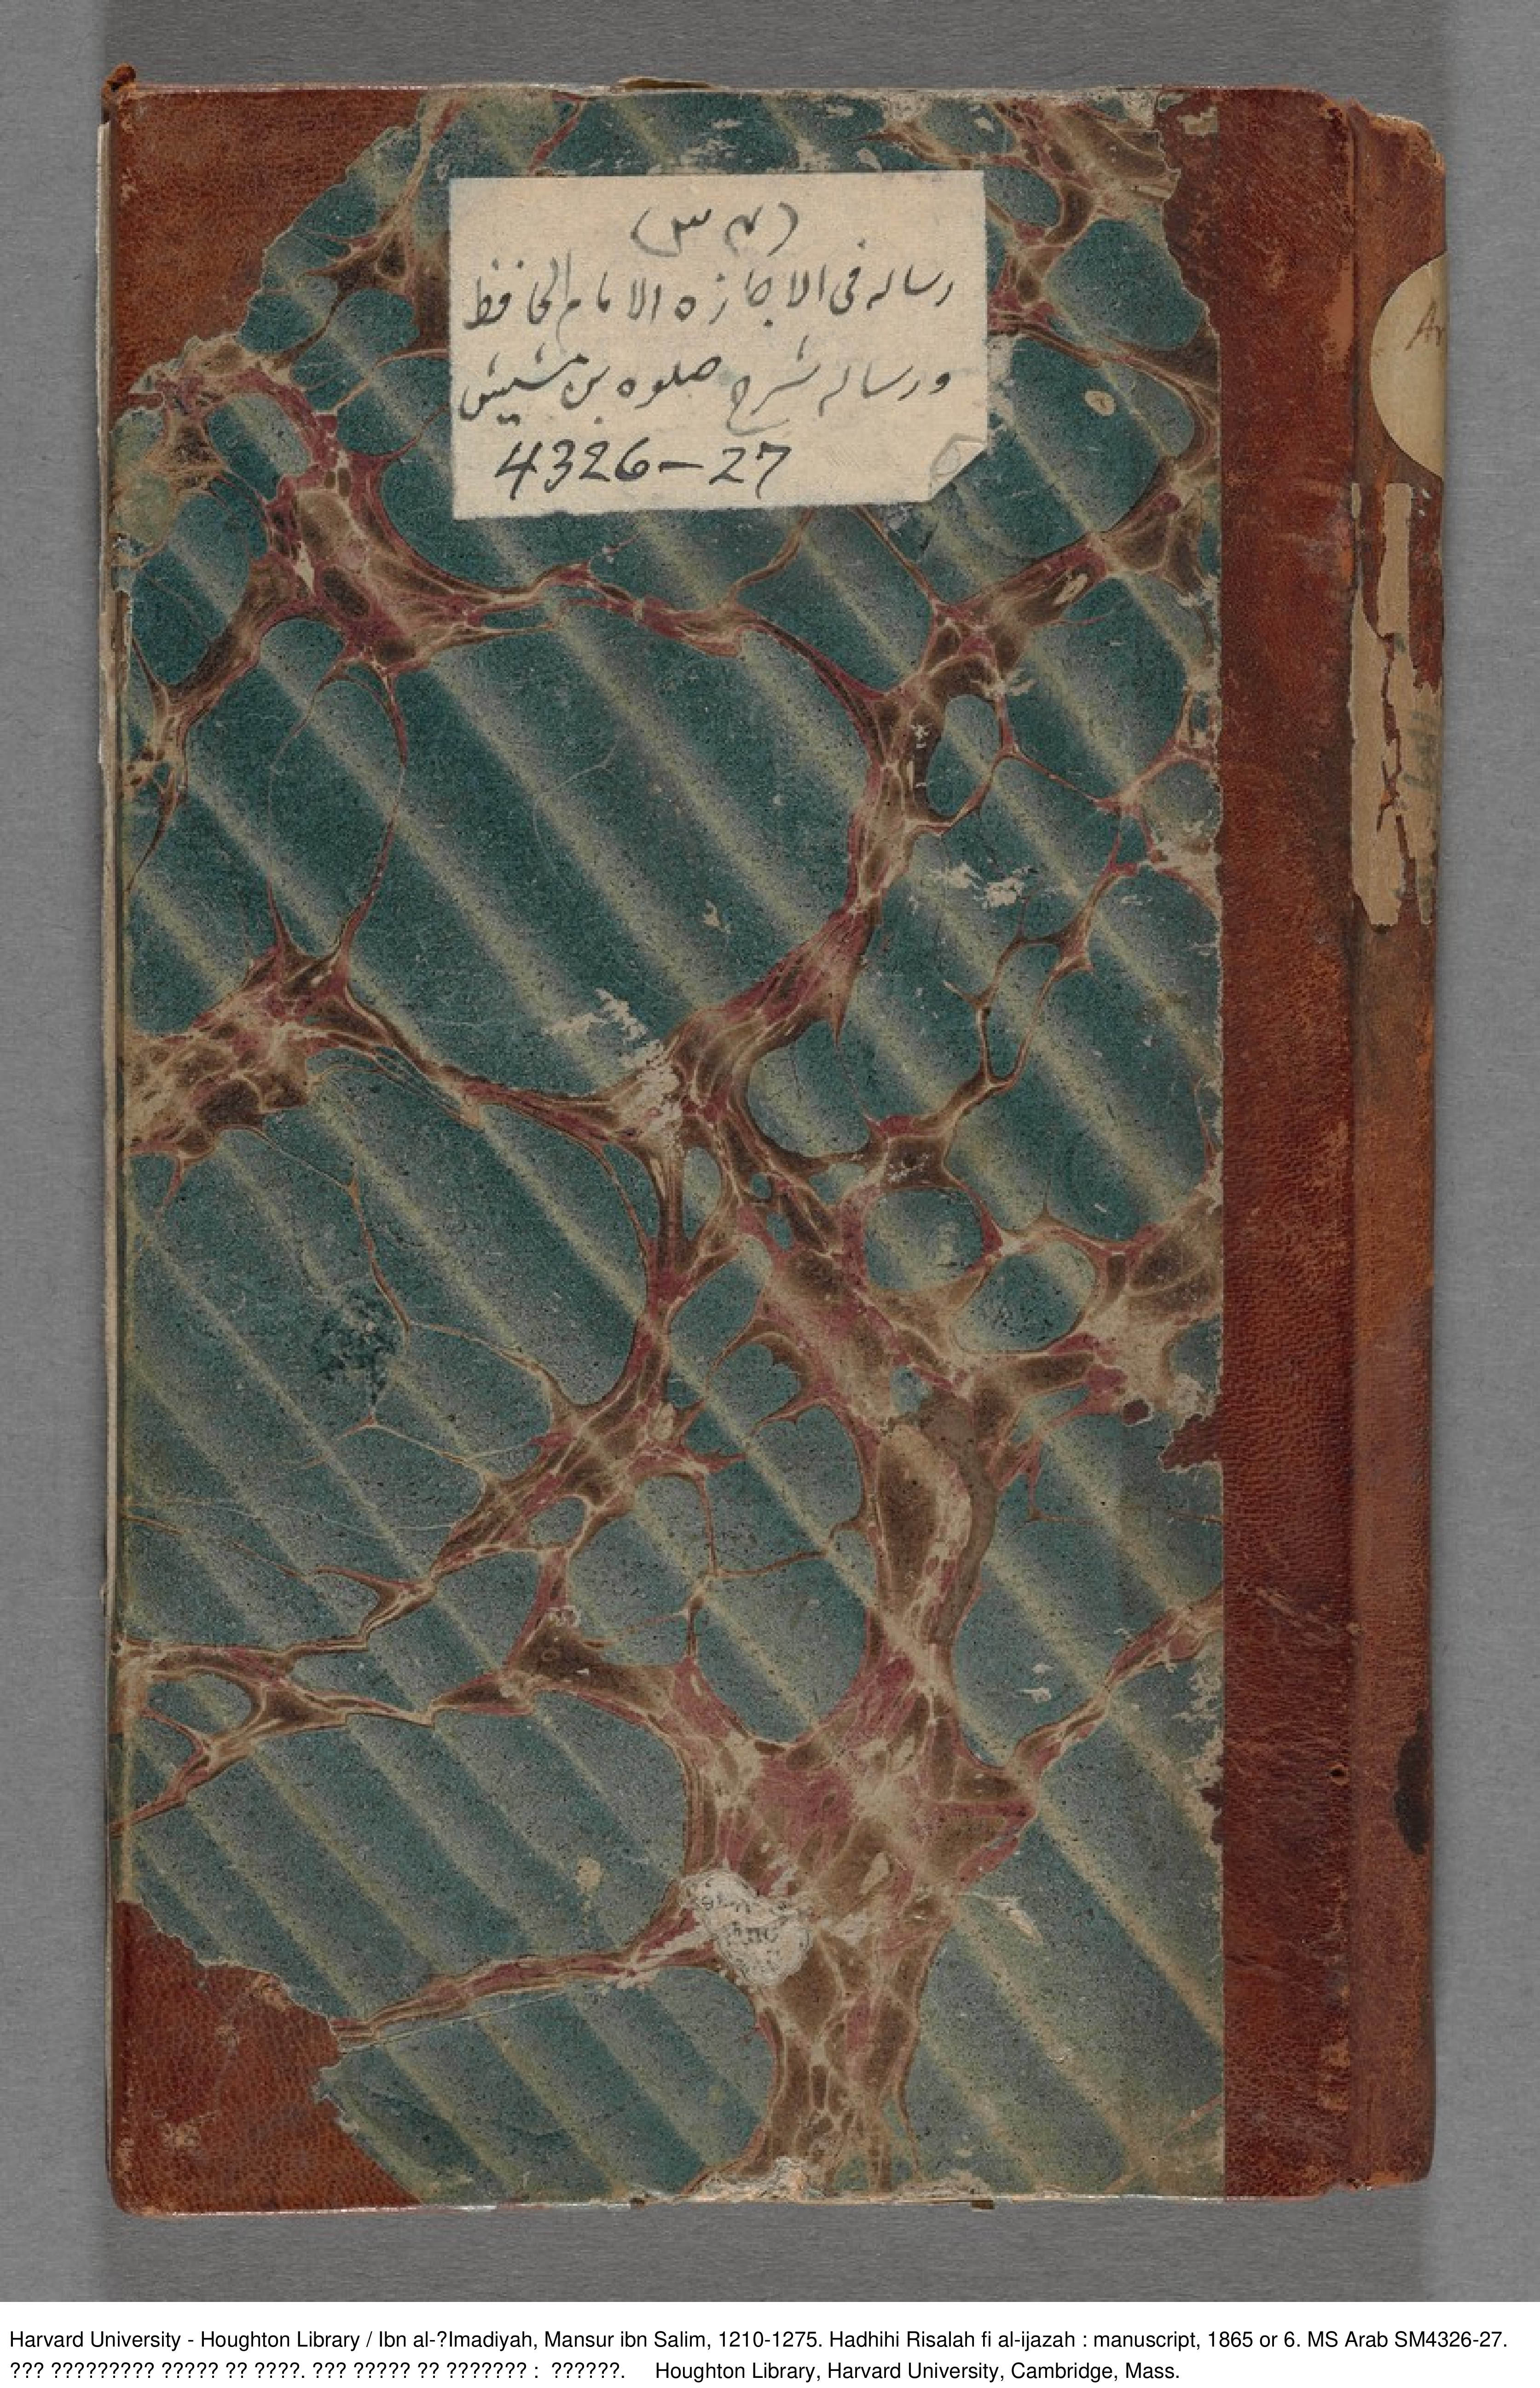 (س م)
رساله فى الاجازه الامام الحافظ
ورساله شرح صلوه بن مشيش
4326-27
Ar
Harvard University - Houghton Library / Ibn al-?Imadiyah, Mansur ibn Salim, 1210-1275. Hadhihi Risalah fi al-ijazah : manuscript, 1865 or 6. MS Arab SM4326-27.
??? ????????? ????? ?? ????. ??? ????? ?? ??????? : ??????. Houghton Library, Harvard University, Cambridge, Mass.